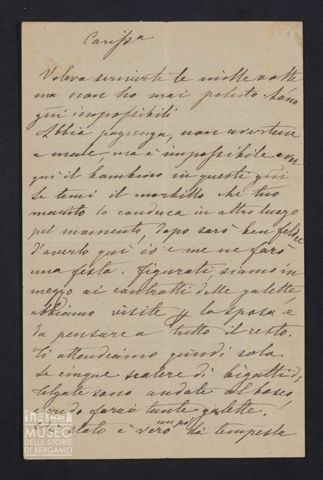 Carissa
Voleva scriverti le molte volte
ma non ho mai potuto
qui impossibili
Abbia pazienza, non avertene
a male, ma è impossibile aver
qui il bambino in questi giorni
Se temi il morbillo che tuo
marito lo conduca in altro luogo
pel momento, dopo sarò ben felice
d'averlo qui io e me ne farò
una festa. Figurati siamo in
mezzo ai contratti delle galette
abbiamo visite la sposa e
da pensare a tutto il resto.
Ti attendiamo quindi sola.
Le cinque scalere di bigatti di
Celgate sono andate al bosco
farai tante galette!
è stato è vero un po' di tempesta
MUSEO
DELLE STORIE
DI BERGAMO